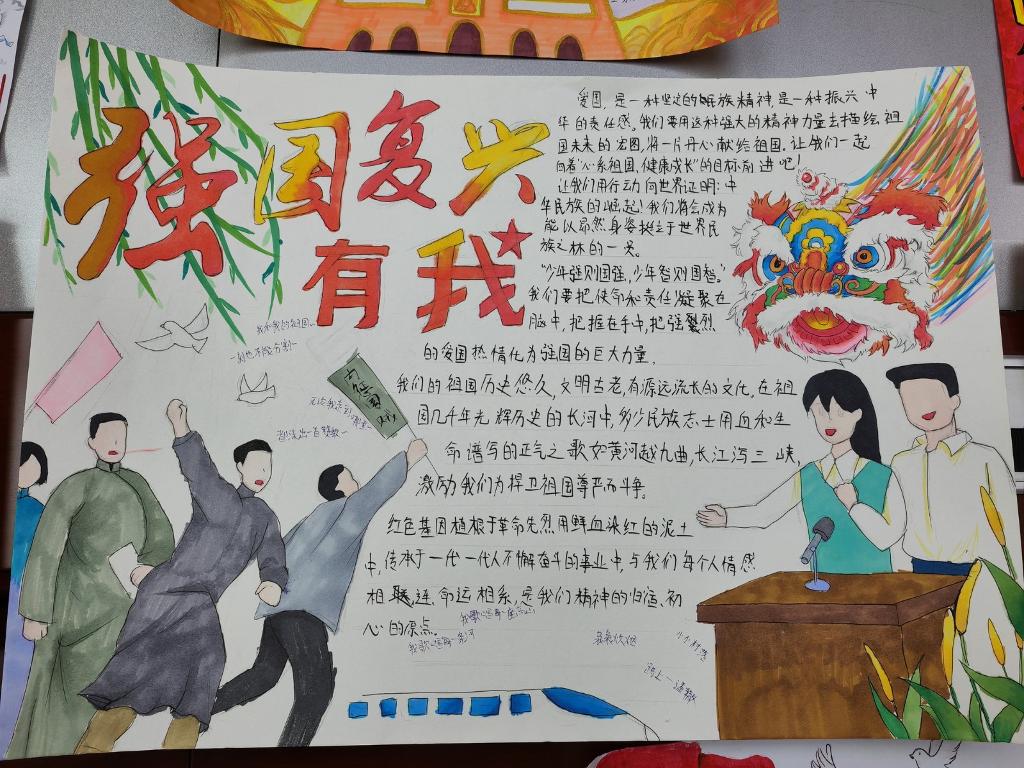 强国复兴
有我
爱国,是一种坚定的民族精神,是一种振兴中
华的责任感。我们要用这种强大的精神力量去描绘祖
国未来的宏图,将一片丹心献给祖国,让我们一起
向着“心系祖国,健康成长”的目标前进吧!
让我们用行动向世界证明:中
华民族的崛起!我们将会成为
能以昂然身姿挺立于世界民
族之林的一员。
“少年强则国强,少年智则国智。”
我们要把使命和责任凝聚在
脑中,把握在手中,把强烈
的爱国热情化为强国的巨大力量。
我们的祖国历史悠久,文明古老,有源远流长的文化。在祖
国几千年光辉历史的长河中,多少民族志士用血和生
命谱写的正气之歌如黄河越九曲,长江泻三峡,
激励我们为捍卫祖国尊严而斗争。
红色基因植根于革命先烈用鲜血染红的泥土
中,传承于一代一代人不懈奋斗的事业中,与我们每个人情感
相联连,命运相系,是我们精神的归宿、初
心的原点。
我和我的祖国
一刻也不能分割
无论我走到哪里
都流出一首赞歌
我歌唱每一座高山
我歌唱每一条河
袅袅炊烟
小小村落
路上一道辙